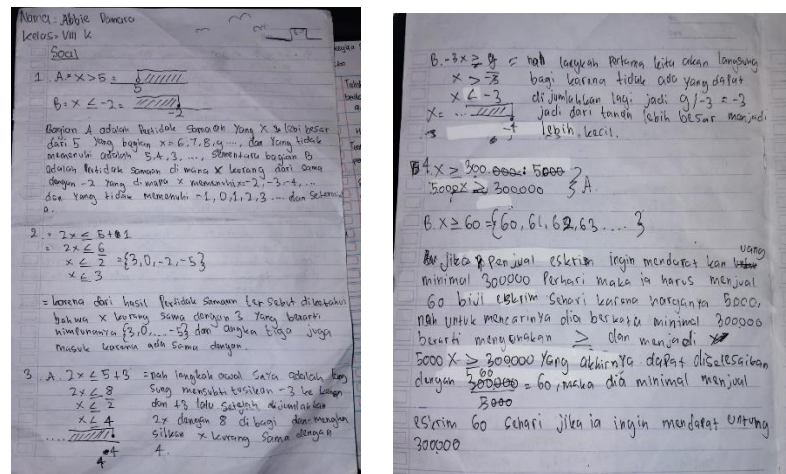 Nama: Abbie Damara
Kelas: VIII K
Soal
1. A = X > 5 =
5
B = X ≤ -2 =
-2
Bagian A adalah Pertidak samaan Yang X lebi besar
dari 5 Yang bagian x = 6, 7, 8, 9 ..., dan Yang tidak
memenuhi adalah 5, 4, 3, ..., Sementara bagian B
adalah Pertidak samaan di mana x kurang dari sama
dengan -2 Yang di mana x memenuhi = -2, -3, -4, ...
dan Yang tidak memenuhi -1, 0, 1, 2, 3 ... dan Seterus
2. = 2x ≤ 5 + 1
= 2x ≤ 6
x ≤ 2 = {3, 0, -2, -5}
x ≤ 3
= karena dari hasil Pertidak samaan tersebut diketahui
bahwa x kurang sama dengan 3 Yang
himpunannya {3, 0, ... -5} dan angka tiga juga
masuk karena ada sama dengan.
3. A. 2x ≤ 5 + 3 = nah langkah awal saya adalah
2x ≤ 8 sung -3 ke
x ≤ 2 dan +3 lalu setelah dijumlahkan
x ≤ 4 2x dengan 8 di bagi dan
silkan x kurang sama dengan
4 4.
B. -3x ≥ 9 = nah langkah Pertama kita akan langsung
x > -3 bagi karena tidak ada yang dapat
x ≤ -3 dijumlahkan lagi jadi 9/-3 = -3
x = ... jadi dari tanda lebih besar menjadi
-4 lebih kecil.
4. X ≥ 300.000 : 5000
5000x ≥ 300000 } A.
B. X ≥ 60 = {60, 61, 62, 63 .... }
Jika Penjual eskrim ingin mendapat kan uang
minimal 300000 Perhari maka ia harus menjual
60 biji eskrim sehari karena harganya 5000,
nah untuk mencarinya dia berkata minimal 300000
berarti menggunakan ≥ dan menjadi
5000 X ≥ 300000 Yang akhirnya dapat diselesaikan
dengan 300000 = 60, maka dia minimal menjual
eskrim 60 sehari jika ia ingin mendapat untung
300000